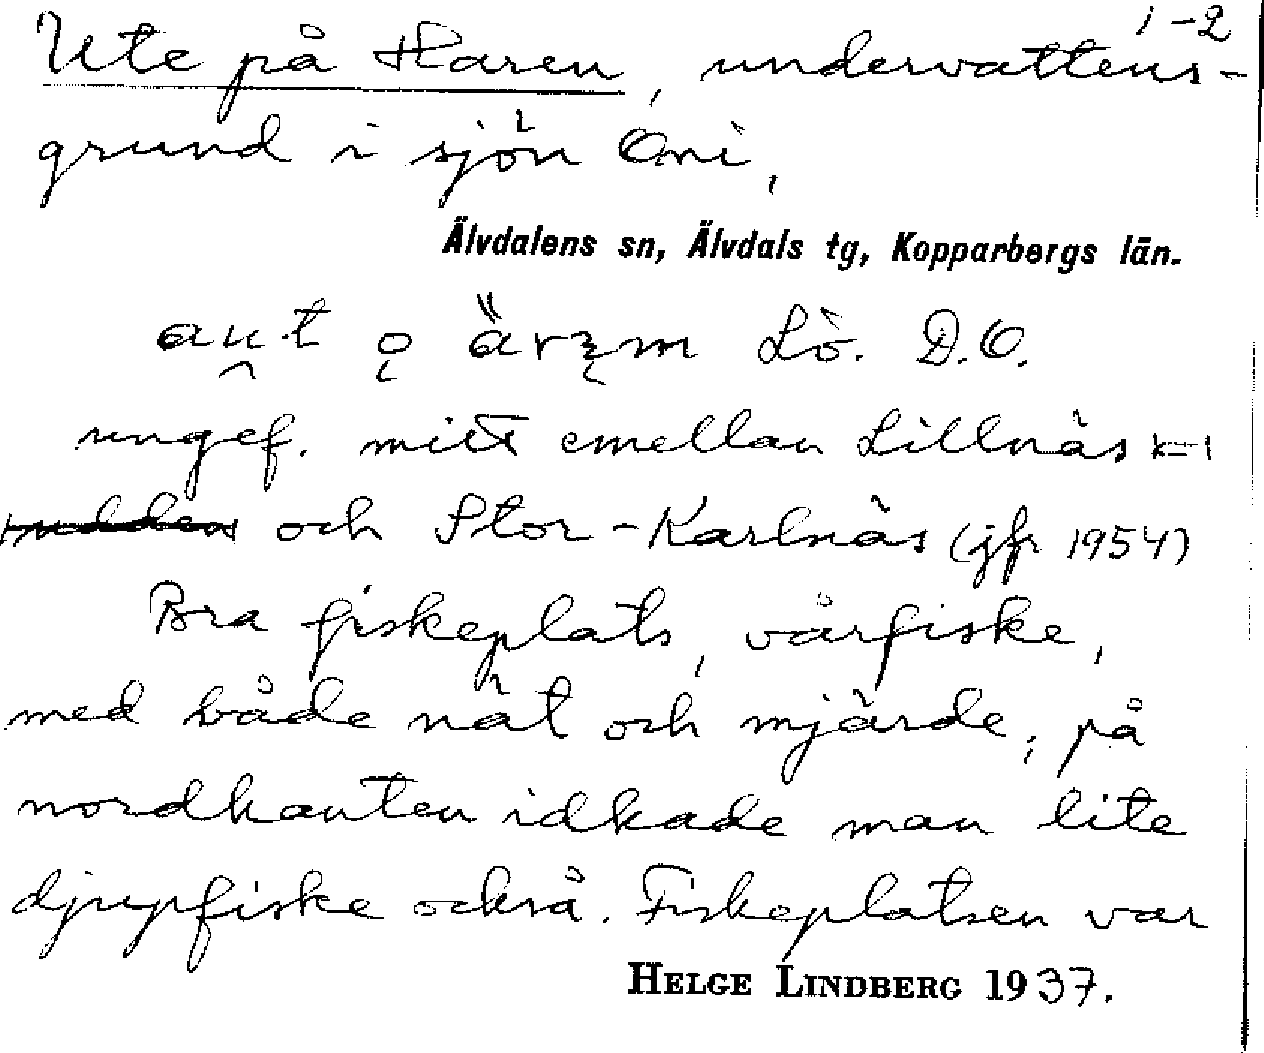 1-2
Ute på Haren, undervattens-
grund i sjön Oni,
Älvdalens sn, Älvdals tg, Kopparbergs län.
Lò. D.O.
ungef. mitt emellan Lillnäs
udden och Stor-Karlnäs (jfr 1954)
Bra fiskeplats, vårfiske,
med både nät och mjärde; på
nordkanten idkade man lite
djupfiske också. Fiskeplatsen var
HELGE LINDBERG 1937.